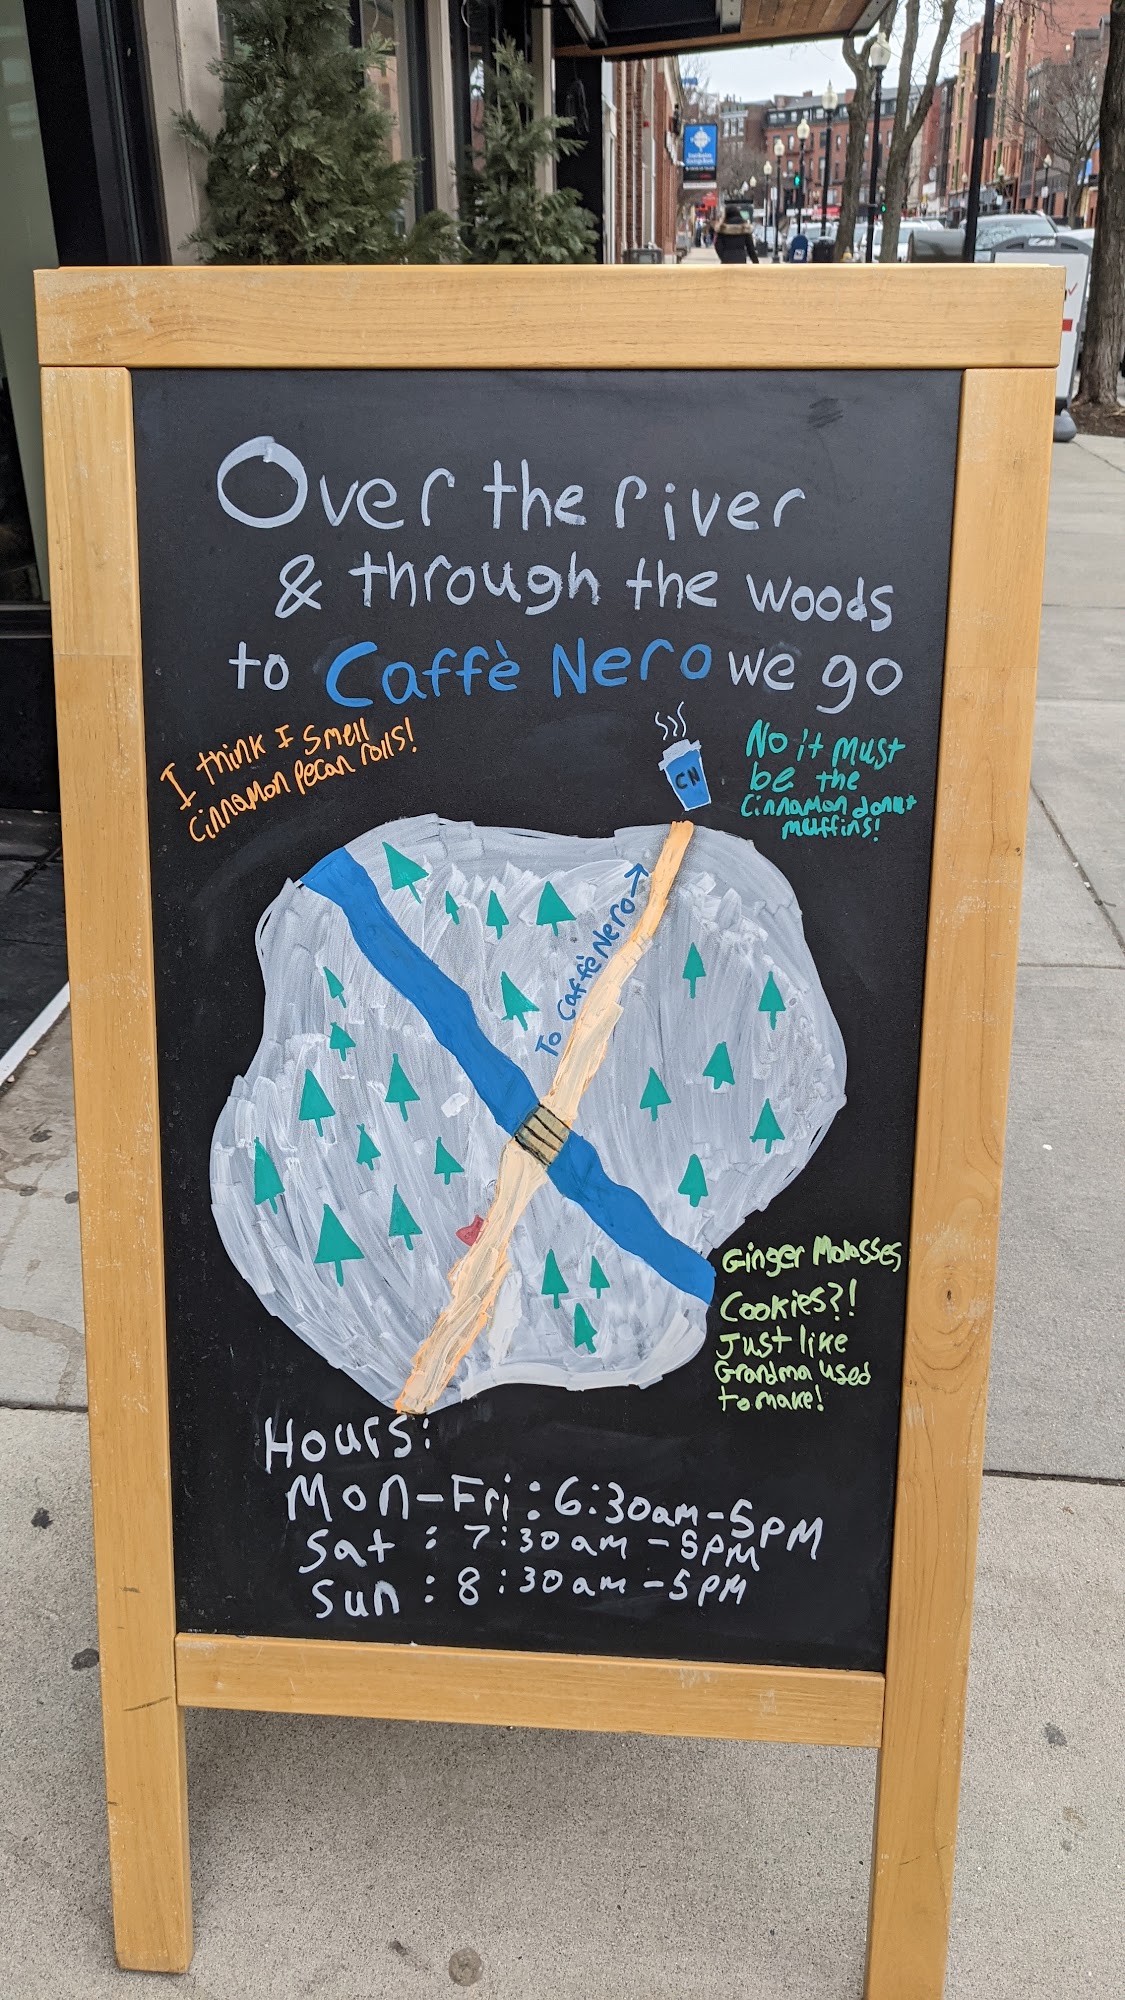 Over the river
& through the woods
to Caffè Nero we go
I think I smell
cinnamon pecan rolls!
CN
No it must
be the
Cinnamon donut
muffins!
To Caffè Nero →
Ginger Molasses
Cookies?!
Just like
Grandma used
to make!
Hours:
Mon-Fri: 6:30am-5PM
Sat : 7:30am -5PM
Sun : 8:30am -5PM